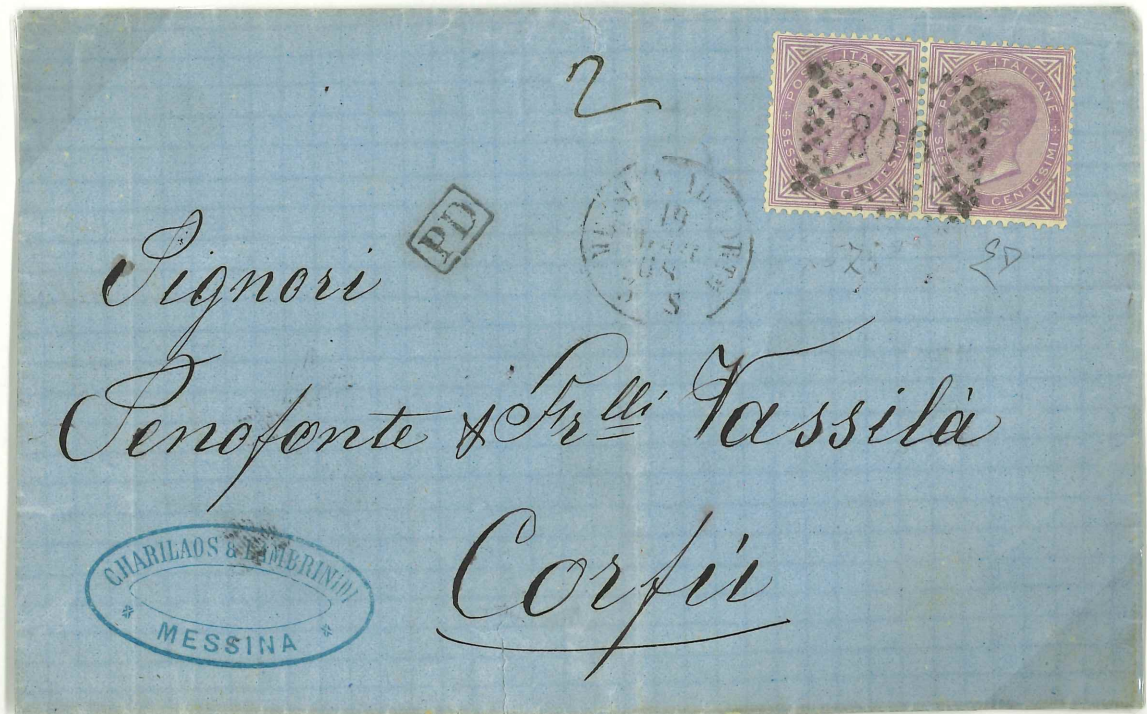 2
POSTE ITALIANE
SESSANTA CENTESIMI
POSTE ITALIANE
SESSANTA CENTESIMI
PD
19
S
Signori
Senofonte & Frlli Vassilà
Corfù
CHARILAOS & LAMBRINIDI
MESSINA